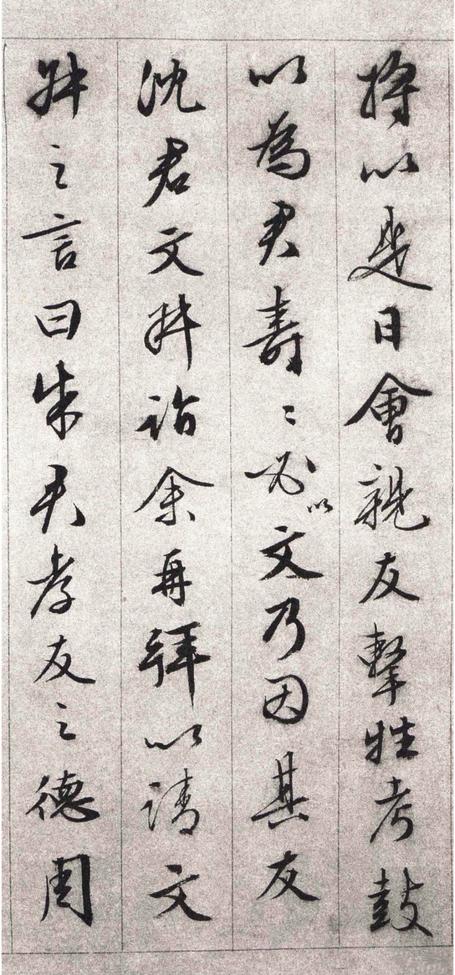 将以是日會親友擊牲考鼓
以為君壽〻必以文乃因其友
沈君文詣余再拜以請文
之言曰朱君孝友之德周